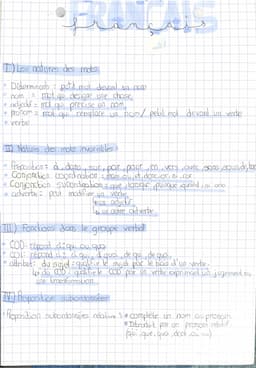 FRANÇAIS
français
I) Les natures des mots
• Déterminant : petit mot devant un nom
• nom = mot qui désigne une chose
• adjectif = mot qui précise un nom
• pronom = mot qui remplace un nom / petit mot devant un verbe
• verbe
II) Natures des mots invariables
• Préposition : à, dans, sur, par, pour, en, vers, avec, sans, sous
• Conjonction coordination : mais ou et donc or ni car
• Conjonction subordination = que, lorsque, puisque quand
• adverbe : peut modifier un verbe
↳ un adjectif
↳ un autre adverbe
III) Fonctions dans le groupe verbal
• COD : répond à qui ou quoi
• COI : répond à à qui, à quoi, de qui, de quoi
• attribut : du sujet : qualifie le sujet par le biais d'un verbe
↳ du COD : qualifie le COD par un verbe exprimant un jugement ou une transformation
IV) Proposition subordonnées
• Proposition subordonnées relative : • complète un nom ou pronom
• Introduit par un pronom relatif
(qui, que, quoi, dont, où)